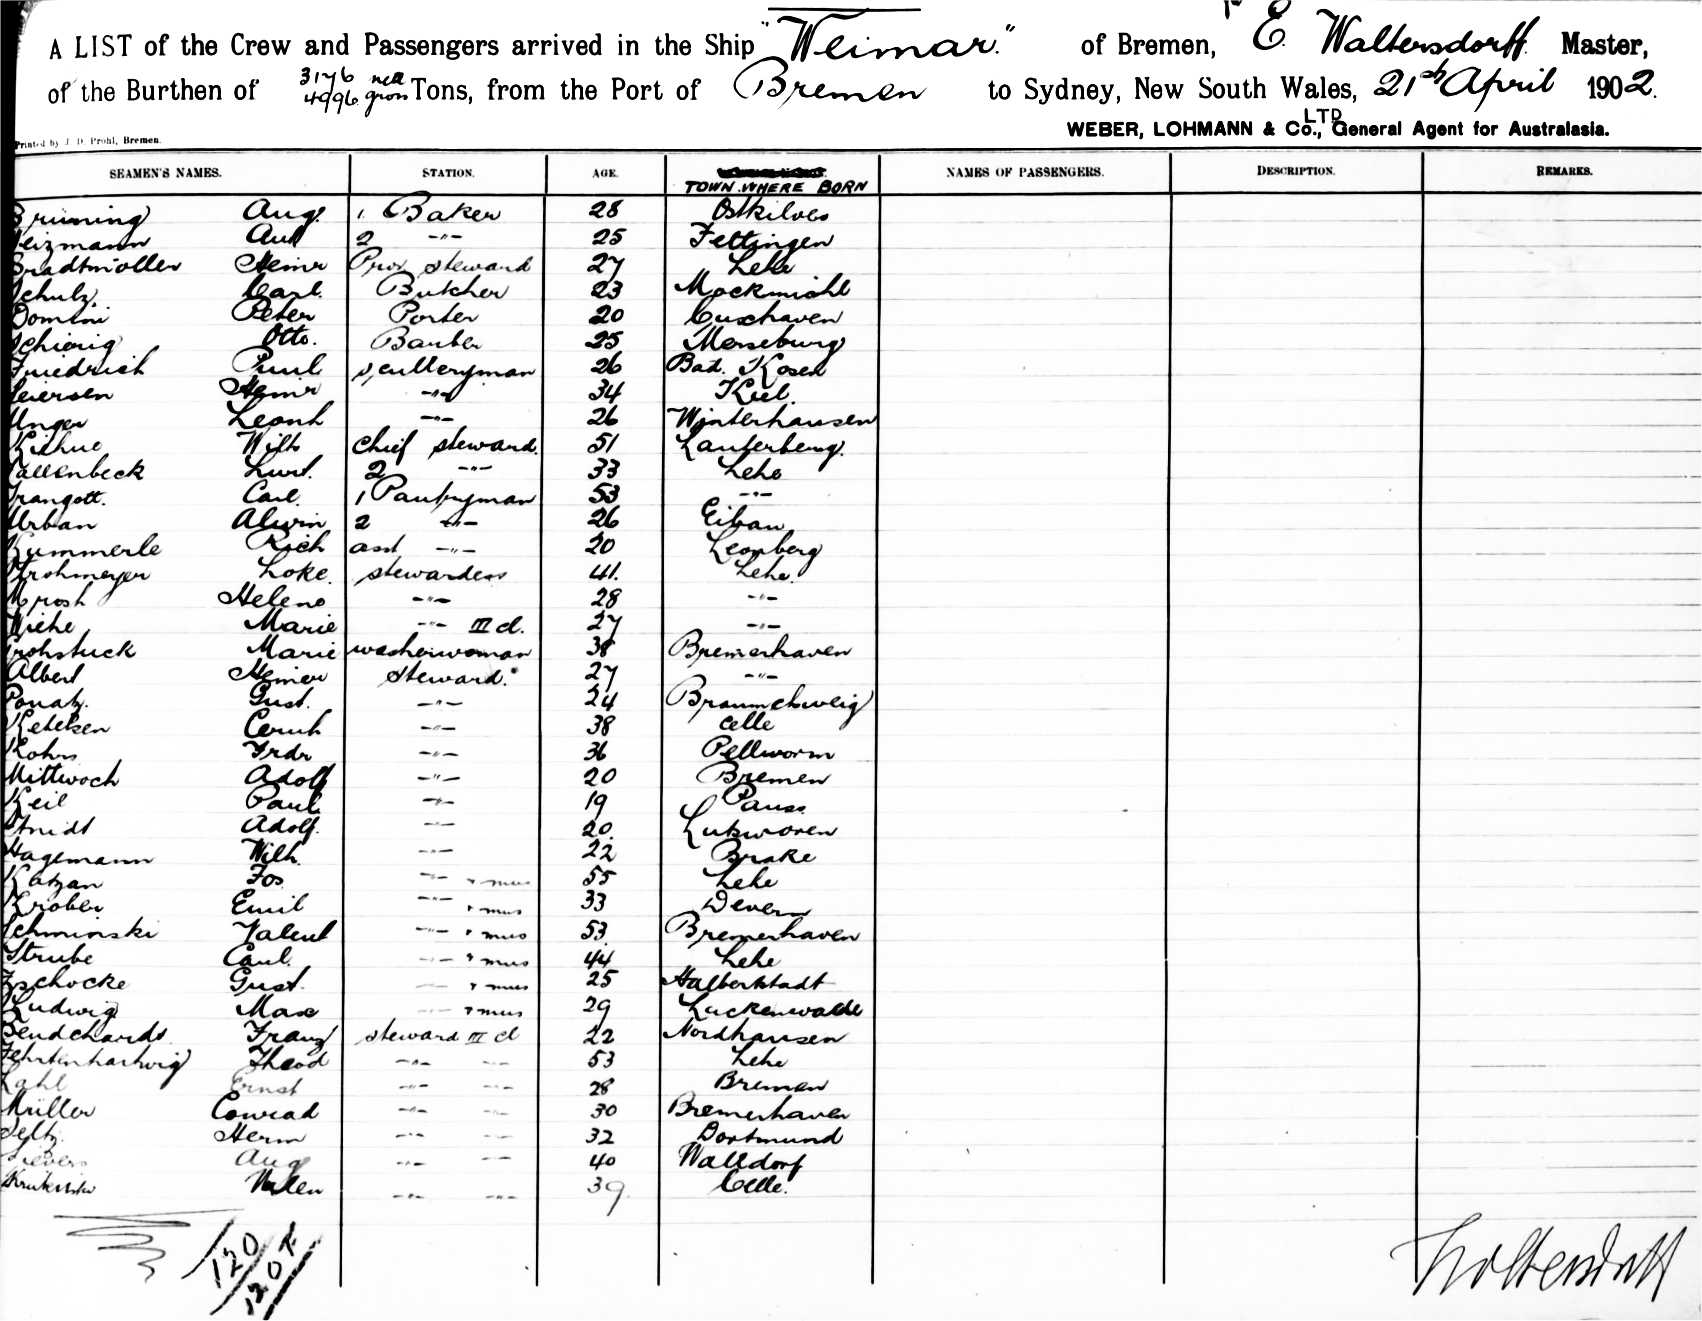 A LIST of the Crew and Passengers arrived in the Ship "Weimar." of Bremen, E. Waltersdorff Master,
of the Burthen of 3176 nett 4996 gross Tons, from the Port of Bremen to Sydney, New South Wales, 21st April 1902.
WEBER, LOHMANN & Co., LTD General Agent for Australasia.
Printed by J. D. Prohl, Bremen.
SEAMEN'S NAMES. STATION. AGE. TOWN WHERE BORN NAMES OF PASSENGERS. DESCRIPTION. REMARKS.
Brüning Aug. 1. Baker 28
Aug 2 -"- 25 Fettingen
Bradtmöller Heinr Prov steward 27 Lehe
Schulz Carl. Butcher 23 Mockmühl
Domini Peter Porter 20 Cuxhaven
Schierig Otto. Barber 25 Merseburg
Friedrich Paul sculleryman 26 Bad. Kosen
Heinr -"- 34 Kiel.
Unger Leonh -"- 26 Winterhausen
Wilh chief steward. 51 Lauterberg.
Kallenbeck 2 -"- 33 Lehe
Trangott. Carl 1 Pantryman 53 -"-
Urban Alwin 2 -"- 26 Eibau
Kümmerle Rich asst -"- 20 Leonberg
Strohmeyer stewardess 41. Lehe.
Mrosh Helene -"- 28 -"-
Wiehe Marie -"- III cl. 27 -"-
Frohstuck Marie washerwoman 38 Bremerhaven
Albert Heiner steward. 27 -"-
Ponatz. Gust. -"- 24 Braunschweig
Ketelsen -"- 38 Celle
Kohrs Frdr -"- 36 Pellworm
Mittwoch Adolf -"- 20 Bremen
Keil Paul -"- 19 Pausa
Adolf. -"- 20.
Hagemann Wilh. -"- 22 Brake
Katzan Jos -"- " mus 55 Lehe
Krober Emil -"- " mus 33
Schminski Valent -"- " mus 53 Bremerhaven
Strube Carl. -"- " mus 44 Lehe
Zschocke Gust. -"- " mus 25 Halberstadt
Ludwig Max -"- " mus 29 Luckenwalde
Franz steward III cl 22 Nordhausen
Fehrtenhartwig Theod -"- -"- 53 Lehe
Lahl Ernst -"- -"- 28 Bremen
Müller Conrad -"- -"- 30 Bremerhaven
Seltz. Herm -"- -"- 32 Dortmund
Sievers Aug -"- -"- 40 Walldorf
-"- -"- 39. Celle.
120
120
Waltersdorff